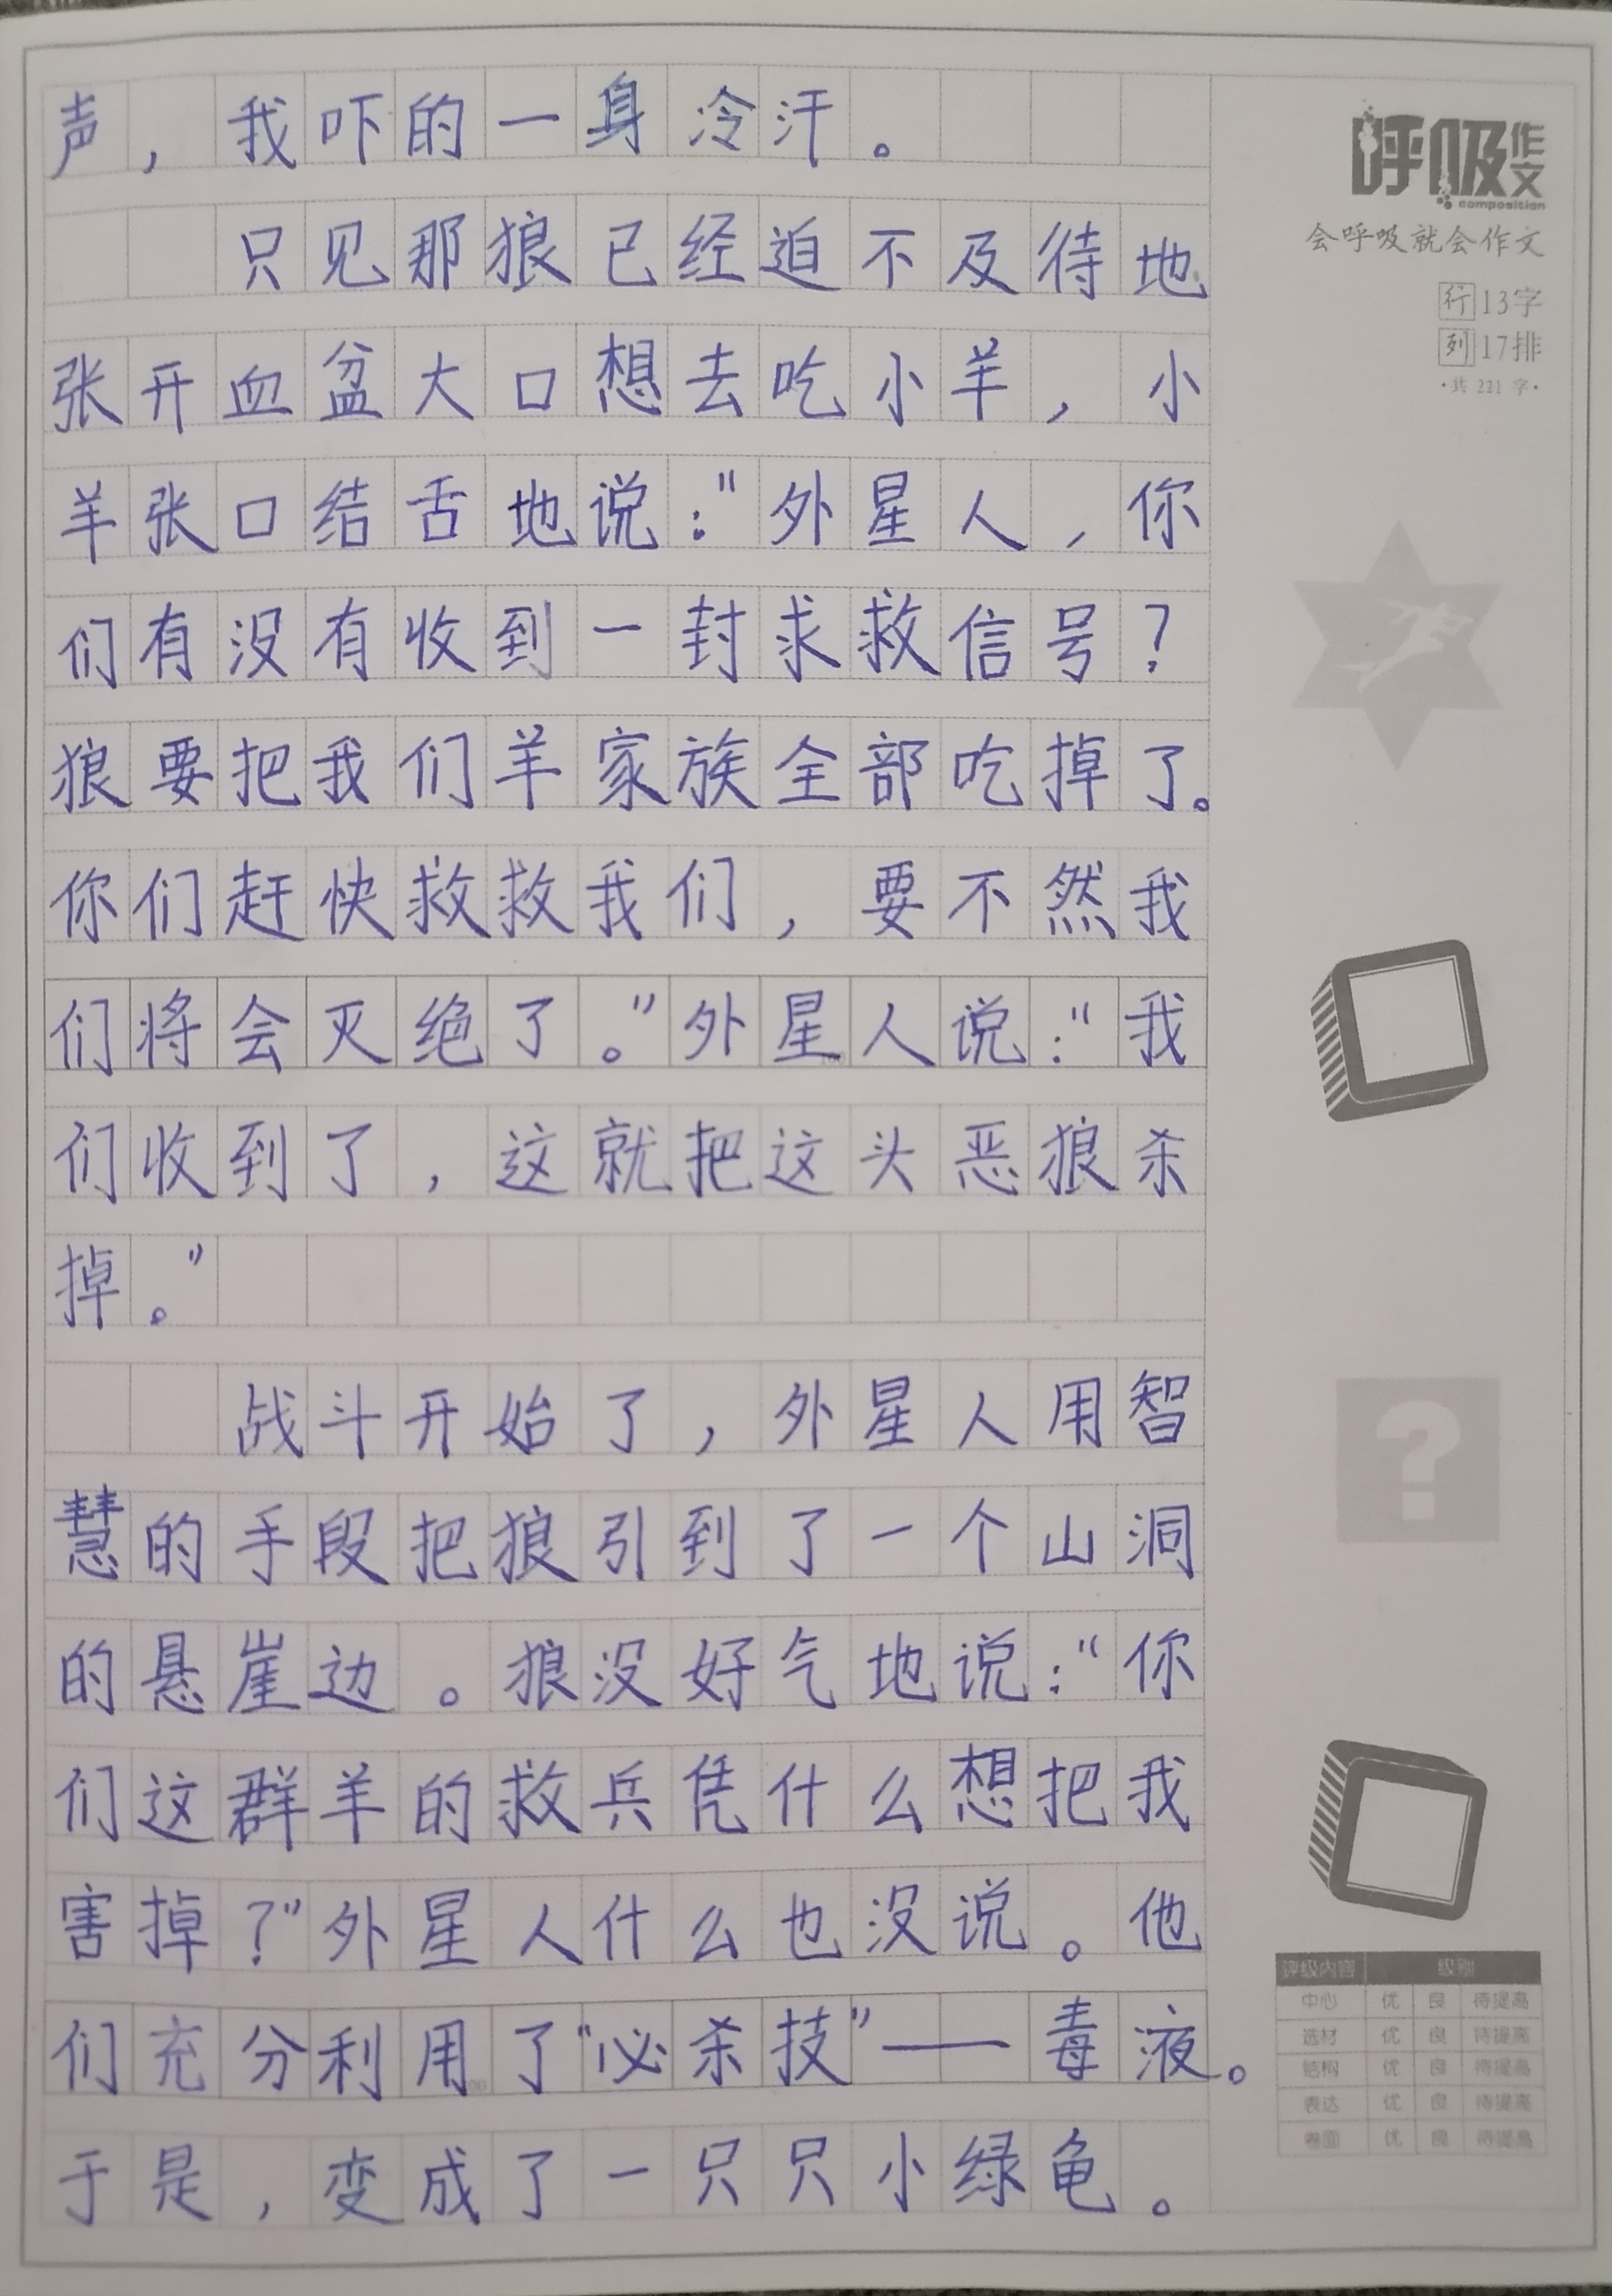 声，我吓的一身冷汗。
只见那狼已经迫不及待地
张开血盆大口想去吃小羊，小
羊张口结舌地说："外星人，你
们有没有收到一封求救信号？
狼要把我们羊家族全部吃掉了。
你们赶快救救我们，要不然我
们将会灭绝了。"外星人说："我
们收到了，这就把这头恶狼杀
掉。"
战斗开始了，外星人用智
慧的手段把狼引到了一个山洞
的悬崖边。狼没好气地说："你
们这群羊的救兵凭什么想把我
害掉？"外星人什么也没说。他
们充分利用了"必杀技"——毒液。
于是，变成了一只只小绿龟。
呼吸作文
composition
会呼吸就会作文
行13字
列17排
·共 221 字·
?
评级内容 级别
中心 优 良 待提高
选材 优 良 待提高
结构 优 良 待提高
表达 优 良 待提高
卷面 优 良 待提高